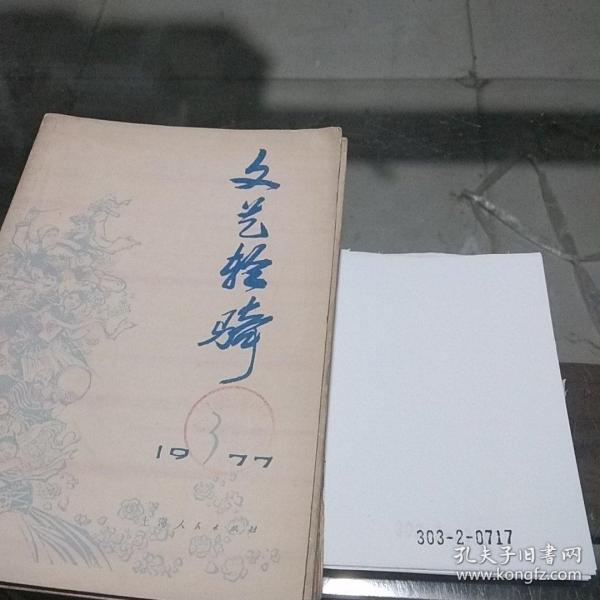 文艺轻骑
3
1977
上海人民出版社
303-2-0717
孔夫子旧书网
www.kongfz.com